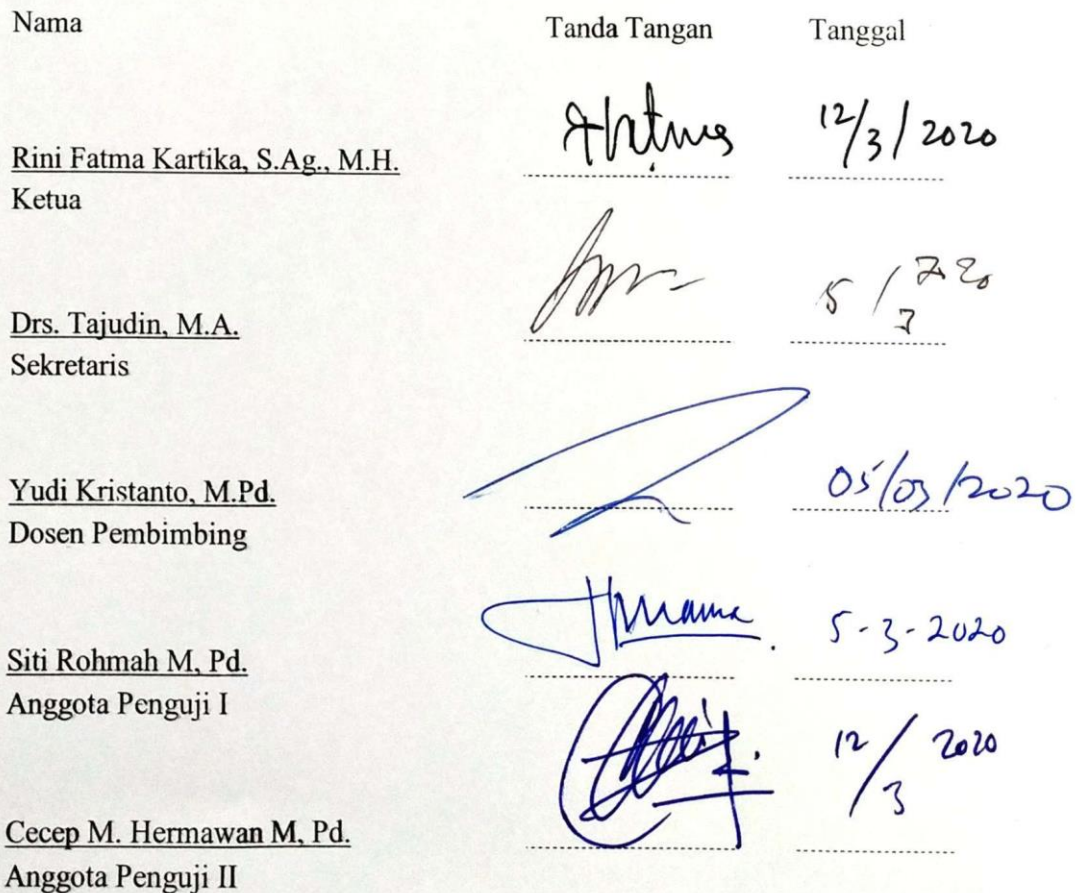 Nama Tanda Tangan Tanggal
12/3/2020
Rini Fatma Kartika, S.Ag., M.H.
Ketua
5/3
Drs. Tajudin, M.A.
Sekretaris
05/03/2020
Yudi Kristanto, M.Pd.
Dosen Pembimbing
5-3-2020
Siti Rohmah M, Pd.
Anggota Penguji I
12/3 2020
Cecep M. Hermawan M, Pd.
Anggota Penguji II